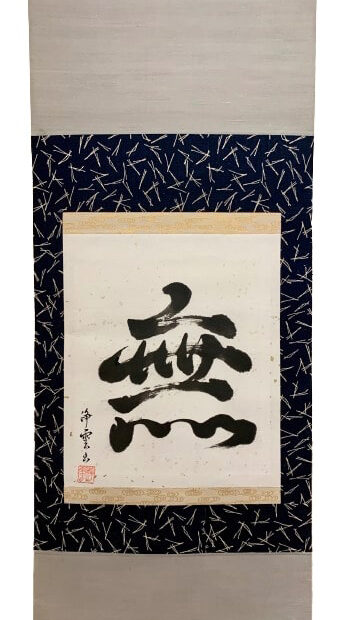 無
浄雲書